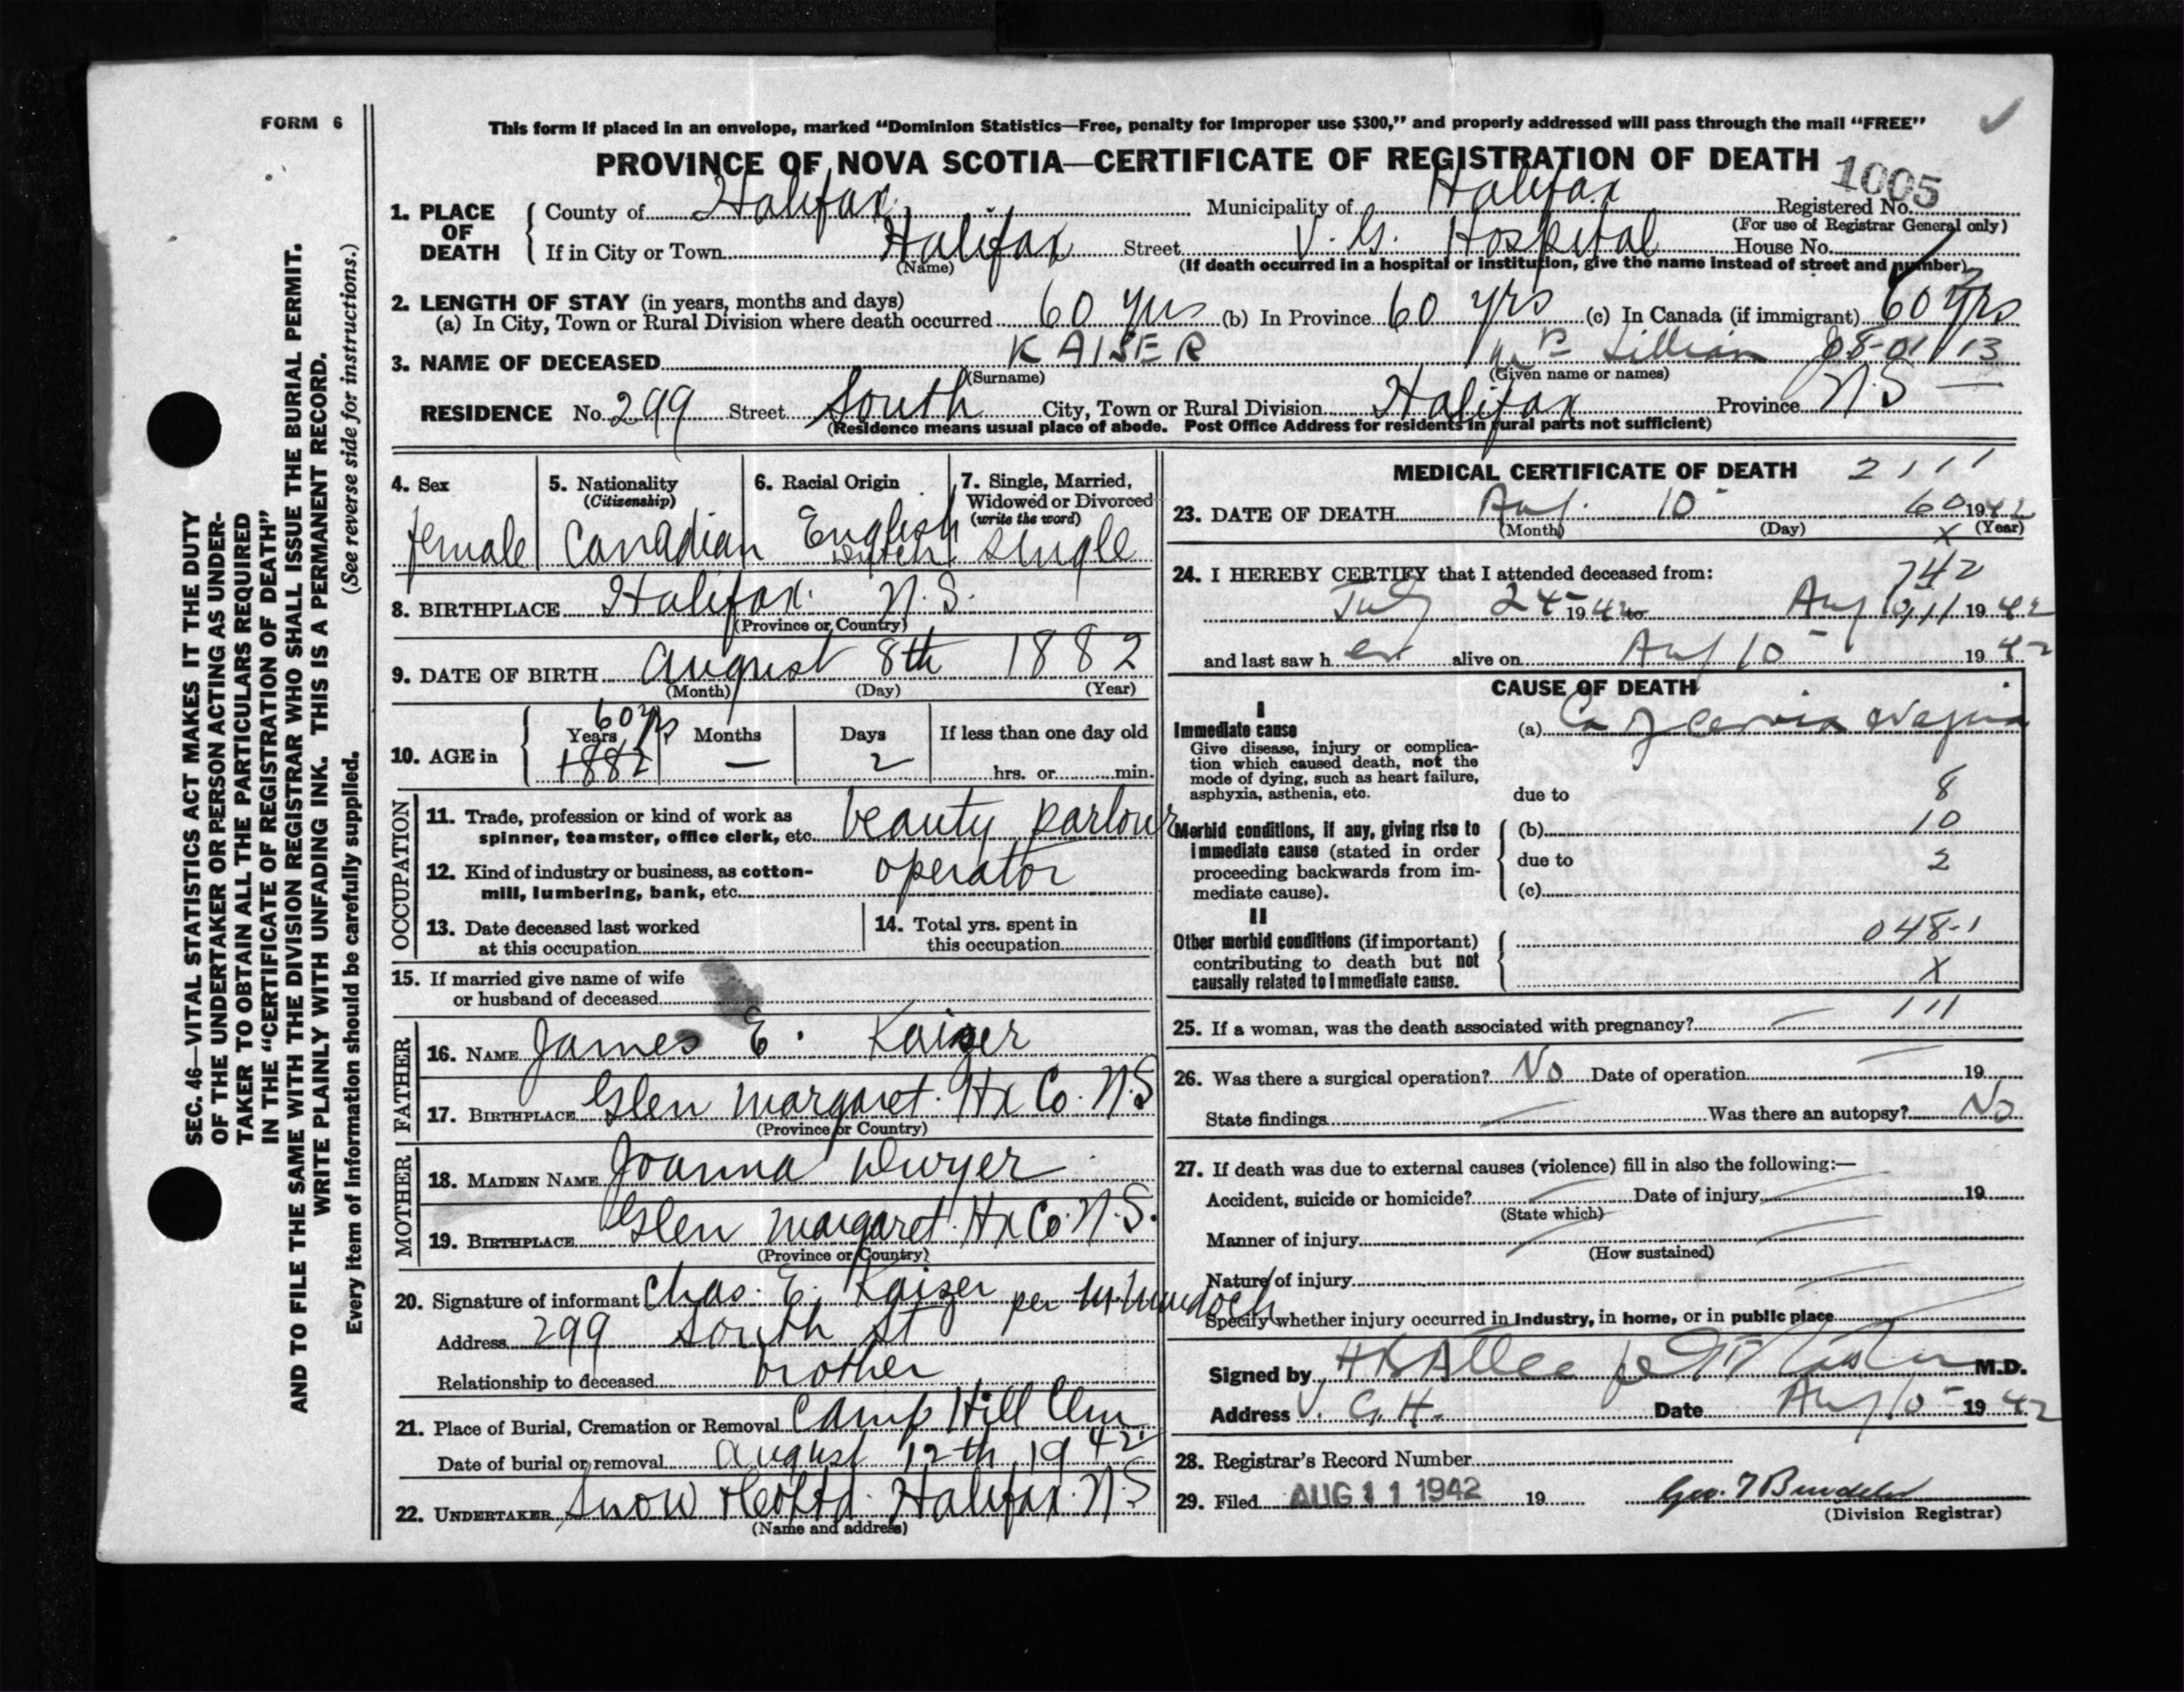 FORM 6
This form if placed in an envelope, marked “Dominion Statistics—Free, penalty for improper use $300,” and properly addressed will pass through the mail “FREE”
PROVINCE OF NOVA SCOTIA—CERTIFICATE OF REGISTRATION OF DEATH
1005
1. PLACE OF DEATH
County of Halifax Municipality of Halifax Registered No.
(For use of Registrar General only)
If in City or Town Halifax Street V. G. Hospital House No.
(Name) (If death occurred in a hospital or institution, give the name instead of street and number)
2. LENGTH OF STAY (in years, months and days)
(a) In City, Town or Rural Division where death occurred 60 yrs (b) In Province 60 yrs (c) In Canada (if immigrant) 60 yrs
3. NAME OF DECEASED KAISER Lillian 08-01 13
(Surname) (Given name or names)
RESIDENCE No. 299 Street South City, Town or Rural Division Halifax Province N.S
(Residence means usual place of abode. Post Office Address for residents in rural parts not sufficient)
4. Sex female
5. Nationality (Citizenship) Canadian
6. Racial Origin English Dutch
7. Single, Married, Widowed or Divorced (write the word) single
8. BIRTHPLACE Halifax. N.S.
(Province or Country)
9. DATE OF BIRTH August 8th 1882
(Month) (Day) (Year)
10. AGE in Years 60 yrs 1882 Months — Days 2 If less than one day old
hrs. or min.
OCCUPATION
11. Trade, profession or kind of work as
spinner, teamster, office clerk, etc. beauty parlour
12. Kind of industry or business, as cotton-
mill, lumbering, bank, etc. operator
13. Date deceased last worked
at this occupation
14. Total yrs. spent in
this occupation
15. If married give name of wife
or husband of deceased
FATHER
16. NAME James E. Kaizer
17. BIRTHPLACE Glen Margaret. Hx Co. N.S
(Province or Country)
MOTHER
18. MAIDEN NAME Joanna Dwyer
19. BIRTHPLACE Glen Margaret. Hx Co. N.S.
(Province or Country)
20. Signature of informant Chas. E. Kaizer per M. Murdoch
Address 299 South St
Relationship to deceased brother
21. Place of Burial, Cremation or Removal Camp Hill Cem
Date of burial or removal August 12th 1942
22. UNDERTAKER Snow & Co Ltd. Halifax. N.S
(Name and address)
MEDICAL CERTIFICATE OF DEATH 2111
23. DATE OF DEATH Aug. 10 60 1942
(Month) (Day) (Year)
X
24. I HEREBY CERTIFY that I attended deceased from: 742
July 24 1942 to Aug 10, 11 1942
and last saw her alive on Aug 10 1942
CAUSE OF DEATH
I
Immediate cause (a) Ca of cervix & vagina
Give disease, injury or complica-
tion which caused death, not the
mode of dying, such as heart failure,
asphyxia, asthenia, etc.
due to 8
Morbid conditions, if any, giving rise to (b) 10
immediate cause (stated in order due to 2
proceeding backwards from im-
mediate cause). (c)
II
Other morbid conditions (if important) 048-1
contributing to death but not X
causally related to immediate cause.
25. If a woman, was the death associated with pregnancy? — 111
26. Was there a surgical operation? No Date of operation — 19
State findings — Was there an autopsy? No
27. If death was due to external causes (violence) fill in also the following:—
Accident, suicide or homicide? — Date of injury — 19
(State which)
Manner of injury —
(How sustained)
Nature of injury —
Specify whether injury occurred in industry, in home, or in public place —
Signed by H B Atlee M.D.
Address V. G. H. Date Aug 10 1942
28. Registrar's Record Number
29. Filed AUG 11 1942 19
(Division Registrar)
SEC. 46—VITAL STATISTICS ACT MAKES IT THE DUTY
OF THE UNDERTAKER OR PERSON ACTING AS UNDER-
TAKER TO OBTAIN ALL THE PARTICULARS REQUIRED
IN THE “CERTIFICATE OF REGISTRATION OF DEATH”
AND TO FILE THE SAME WITH THE DIVISION REGISTRAR WHO SHALL ISSUE THE BURIAL PERMIT.
WRITE PLAINLY WITH UNFADING INK. THIS IS A PERMANENT RECORD.
Every item of information should be carefully supplied. (See reverse side for instructions.)